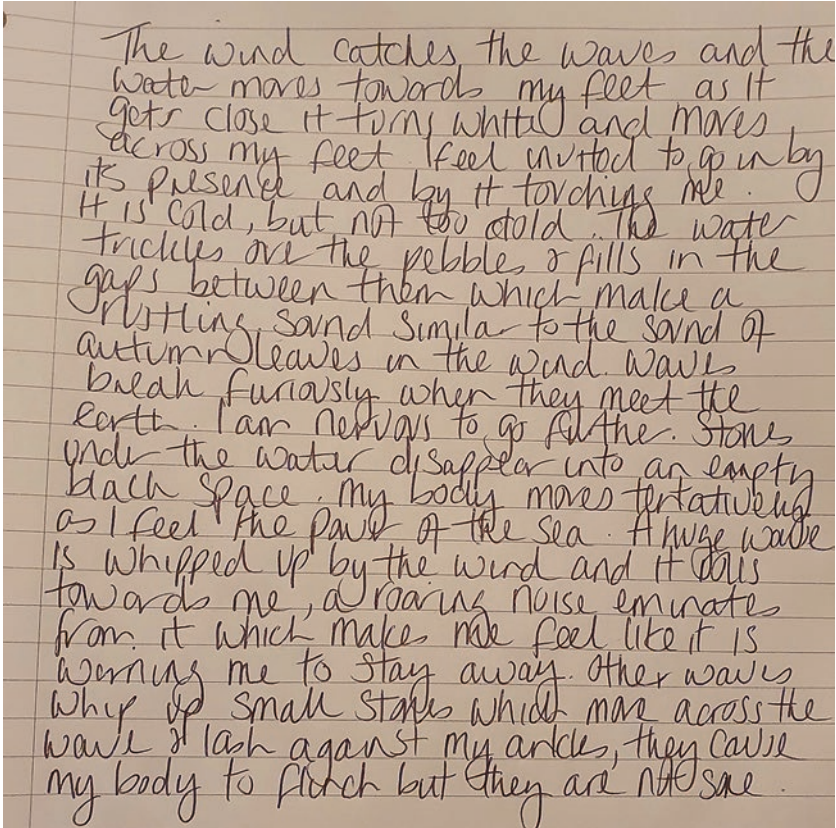 The wind catches the waves and the
water moves towards my feet as it
gets close it turns white and moves
across my feet. I feel invited to go in by
its presence and by it touching me.
It is cold, but not too cold. The water
trickles over the pebbles & fills in the
gaps between them which make a
rustling sound similar to the sound of
autumn leaves in the wind. Waves
break furiously when they meet the
earth. I am nervous to go further. Stones
under the water disappear into an empty
black space. My body moves tentatively
as I feel the power of the sea. A huge wave
is whipped up by the wind and it
towards me, a roaring noise eminates
from it which makes me feel like it is
warning me to stay away. Other waves
whip up small stones which move across the
wave & lash against my ankles, they cause
my body to flinch but they are not